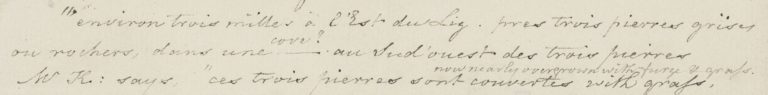 "environ trois milles à l'Est du Lig. pres trois pierres grises
ou rochers, dans une cove? au Sud'ouest des trois pierres
now nearly overgrown with furze & grass.
Mr K: says, "ces trois pierres sont couvertes with grass,